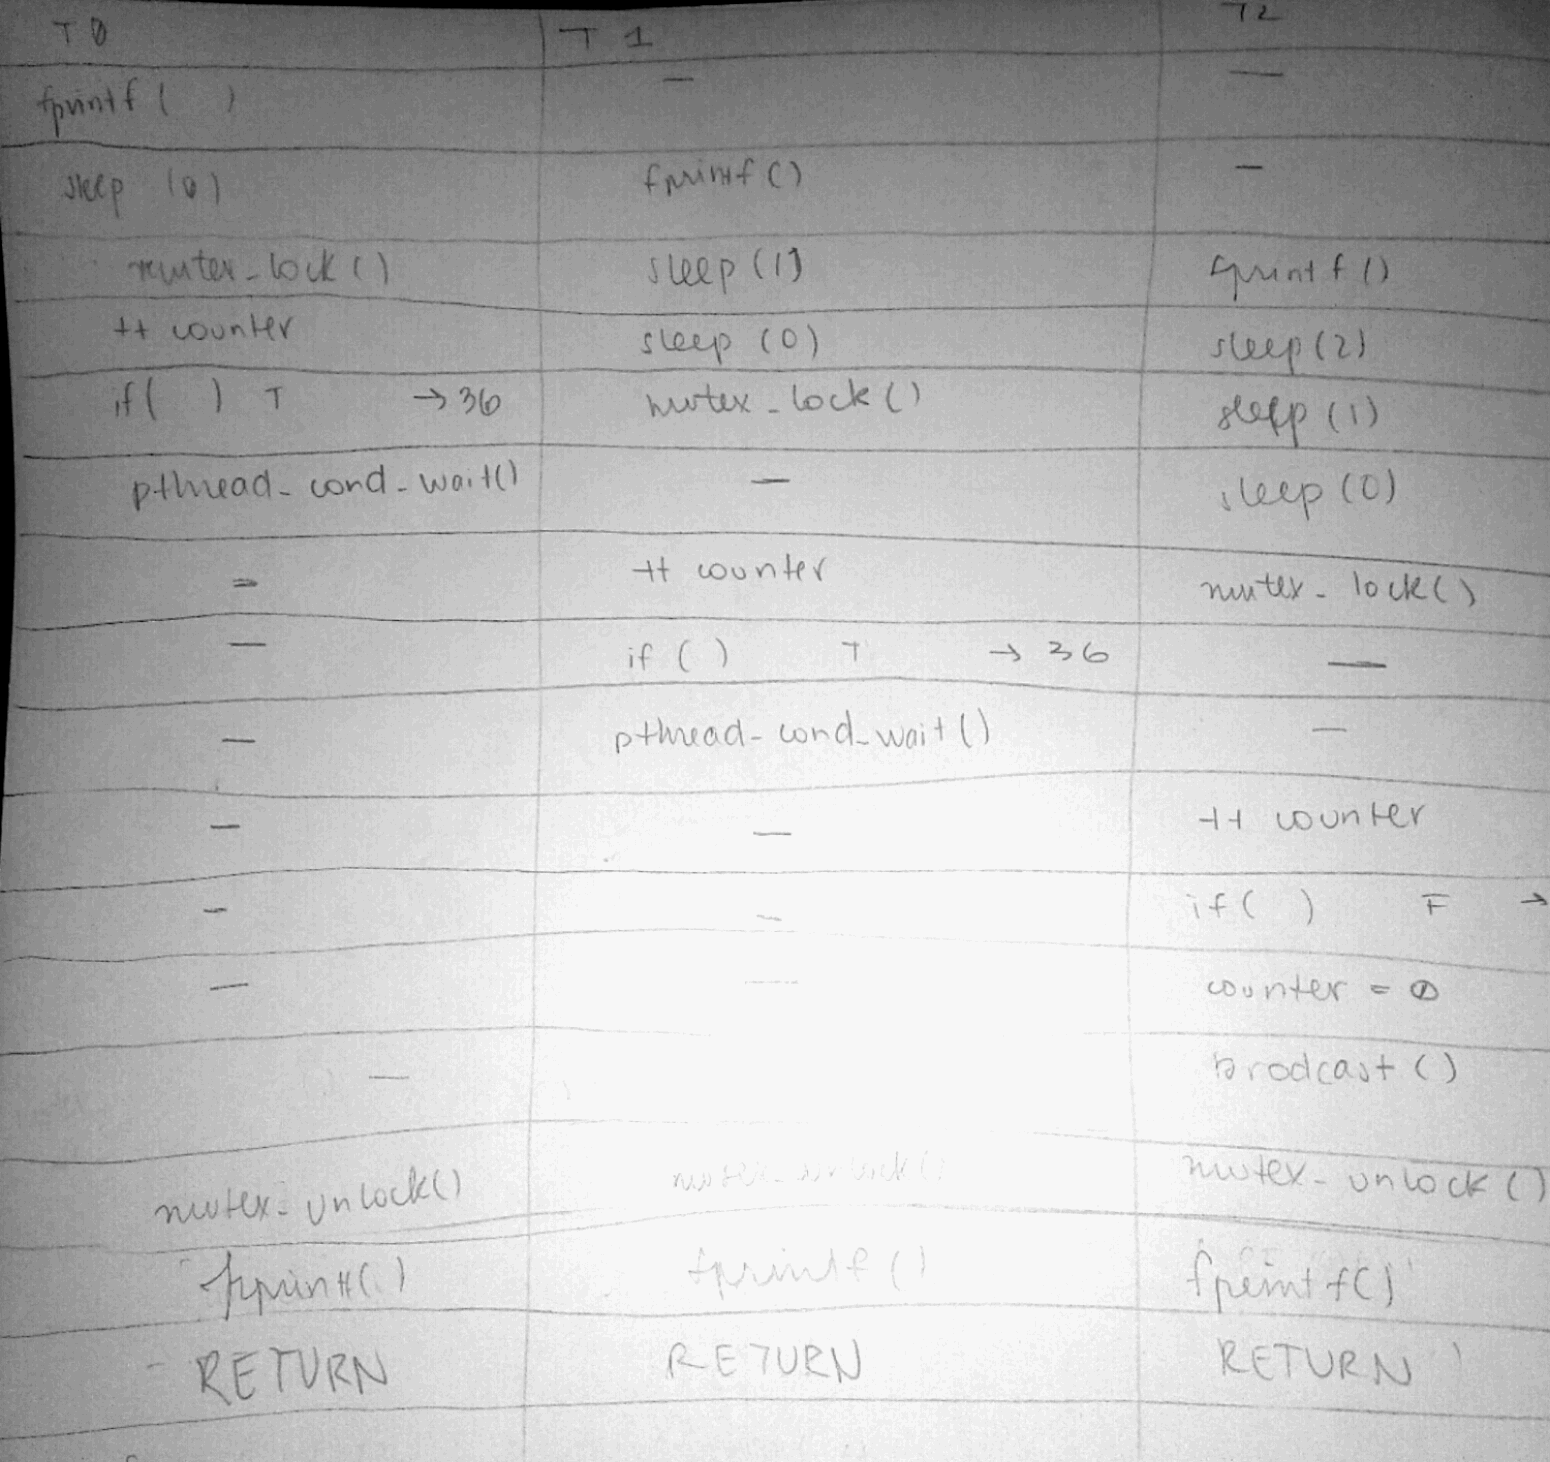 T0 T1 T2
fprintf ( ) — —
sleep (0) fprintf () —
mutex_lock () sleep (1) fprintf ()
++ counter sleep (0) sleep (2)
if ( ) T → 36 mutex_lock () sleep (1)
pthread_cond_wait() — sleep (0)
— ++ counter mutex_lock()
— if ( ) T → 36 —
— pthread_cond_wait () —
— — ++ counter
— — if ( ) F →
— — counter = 0
— brodcast ()
mutex_unlock() mutex_unlock () mutex_unlock ()
fprintf( ) fprintf () fprintf()
RETURN RETURN RETURN